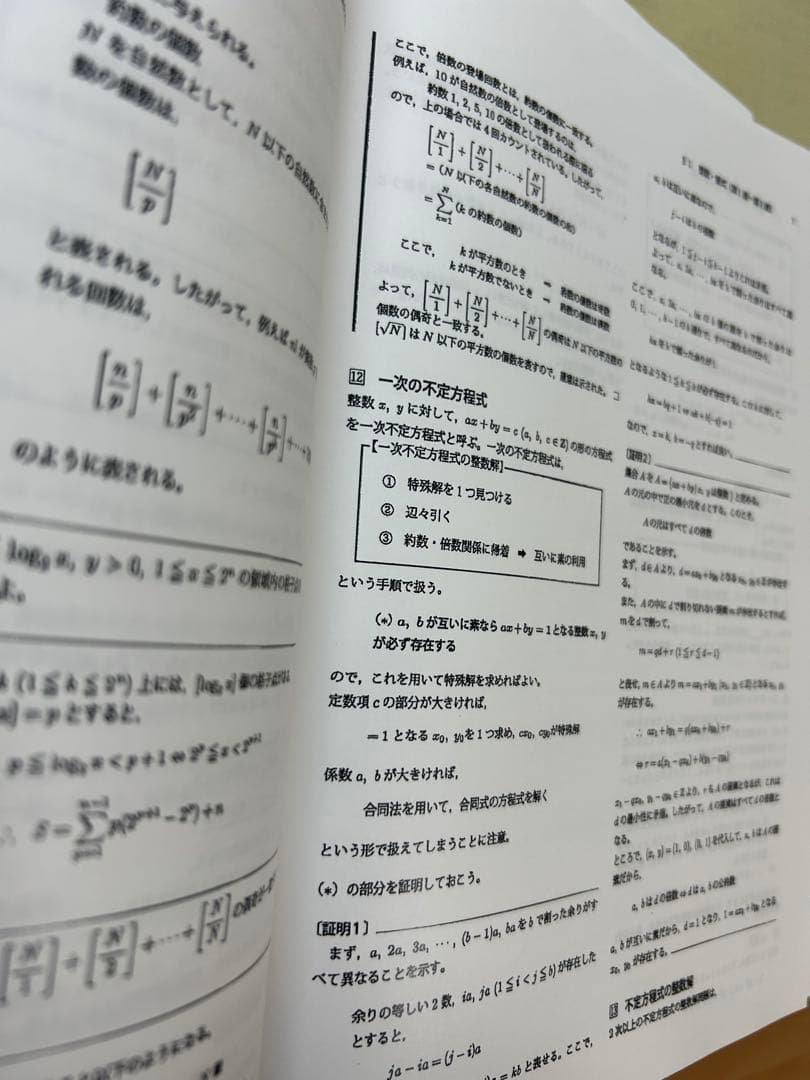 与えられる。
約数の個数
Nを自然数として、N以下の自然数
数の個数は、
[N/p]
と表される。したがって、例えば
れる回数は、
[n/p]+[n/p²]+…+[n/
のように表される。
log₂x, y>0, 1≦x≦2ⁿの領域内の格子
(1≦k≦2ⁿ)上には、[log₂x]個の格子点が
=pとすると、
p≦log₂x<p+1⇔2ᵖ≦x<2ᵖ⁺¹
∴ S=Σp(2ᵖ⁺¹-2ᵖ)+n
[N/1]+[N/2]+…+[N/N]の偶奇
以下のようになる。
ここで、倍数の登場回数とは、約数の個数に一致する。
例えば、10が自然数の倍数として登場するのは、
約数1, 2, 5, 10の倍数として扱われる際に限る
ので、上の場合では4回カウントされている。したがって、
[N/1]+[N/2]+…+[N/N]
=(N以下の各自然数の約数の個数の和)
=Σ_{k=1}^{N}(kの約数の個数)
ここで、 kが平方数のとき ⇒ 約数の個数は奇数
kが平方数でないとき ⇒ 約数の個数は偶数
よって、[N/1]+[N/2]+…+[N/N]の偶奇はN以下の平方数の
個数の偶奇と一致する。
[√N]はN以下の平方数の個数を表すので、題意は示された。
12 一次の不定方程式
整数x, yに対して、ax+by=c(a, b, c∈Z)の形の方程式
を一次不定方程式と呼ぶ。一次の不定方程式は、
【一次不定方程式の整数解】
① 特殊解を1つ見つける
② 辺々引く
③ 約数・倍数関係に帰着 ➡ 互いに素の利用
という手順で扱う。
(*) a, bが互いに素ならax+by=1となる整数x, y
が必ず存在する
ので、これを用いて特殊解を求めればよい。
定数項cの部分が大きければ、
=1となるx₀, y₀を1つ求め、cx₀, cy₀が特殊解
係数a, bが大きければ、
合同法を用いて、合同式の方程式を解く
という形で扱えてしまうことに注意。
(*)の部分を証明しておこう。
〔証明1〕
まず、a, 2a, 3a, …, (b-1)a, baをbで割った余りがす
べて異なることを示す。
余りの等しい2数、ia, ja (1≦i<j≦b)が存在した
とすると、
ja-ia=(j-i)a
=kbと表せる。ここで、
a, bは互いに素なので、
j-iはbの倍数
となるが、1≦j-i≦b-1よりこれは矛盾。
よって、a, 2a, …, baをbで割った余りはすべて異
なる。
となるような1≦k≦bが必ず存在する。これに対して、
なので、x=k, y=-qとすれば良い。
〔証明2〕
集合AをA={ax+by|x, yは整数}と定める。
Aの元の中で正の最小元をdとする。このとき、
Aの元はすべてdの倍数
であることを示す。
まず、d∈Aより、d=ax₀+by₀となるx₀, y₀∈Zが存在す
る。
また、Aの中にdで割り切れない要素mが存在するとすれば、
mをdで割って、
m=qd+r (1≦r≦d-1)
と表せ、m∈Aよりm=ax₁+by₁ (x₁, y₁∈Z)となるx₁, y₁
が存在する。
∴ ax₁+by₁=q(ax₀+by₀)+r
⇔r=a(x₁-qx₀)+b(y₁-qy₀)
x₁-qx₀, y₁-qy₀∈Zより、rもAの要素となるが、これは
dの最小性に矛盾。したがって、Aの要素はすべてdの倍数と
なる。
ところで、(x, y)=(1, 0), (0, 1)を代入して、a, bはAの要
素だから、
a, bはdの倍数⇔dはa, bの公約数
a, bが互いに素だから、d=1となり、1=ax₀+by₀となる
x₀, y₀が存在する。
13 不定方程式の整数解
2次以上の不定方程式の整数解問題は、